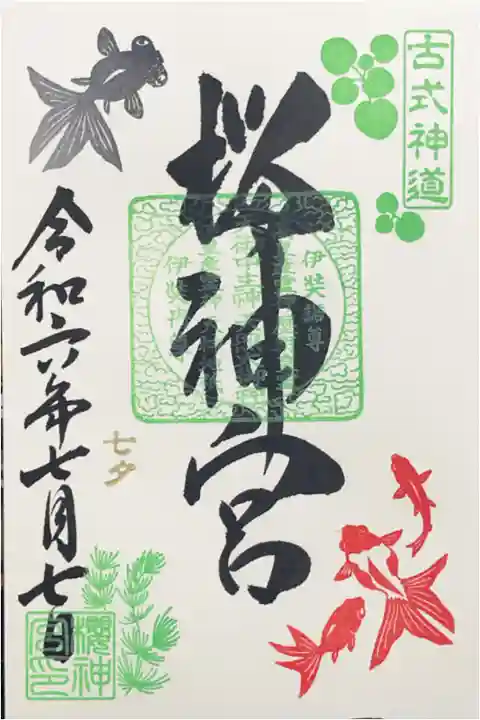 古式神道
桜神宮
伊奘諾尊
令和六年七月七日
七夕
櫻神宮印